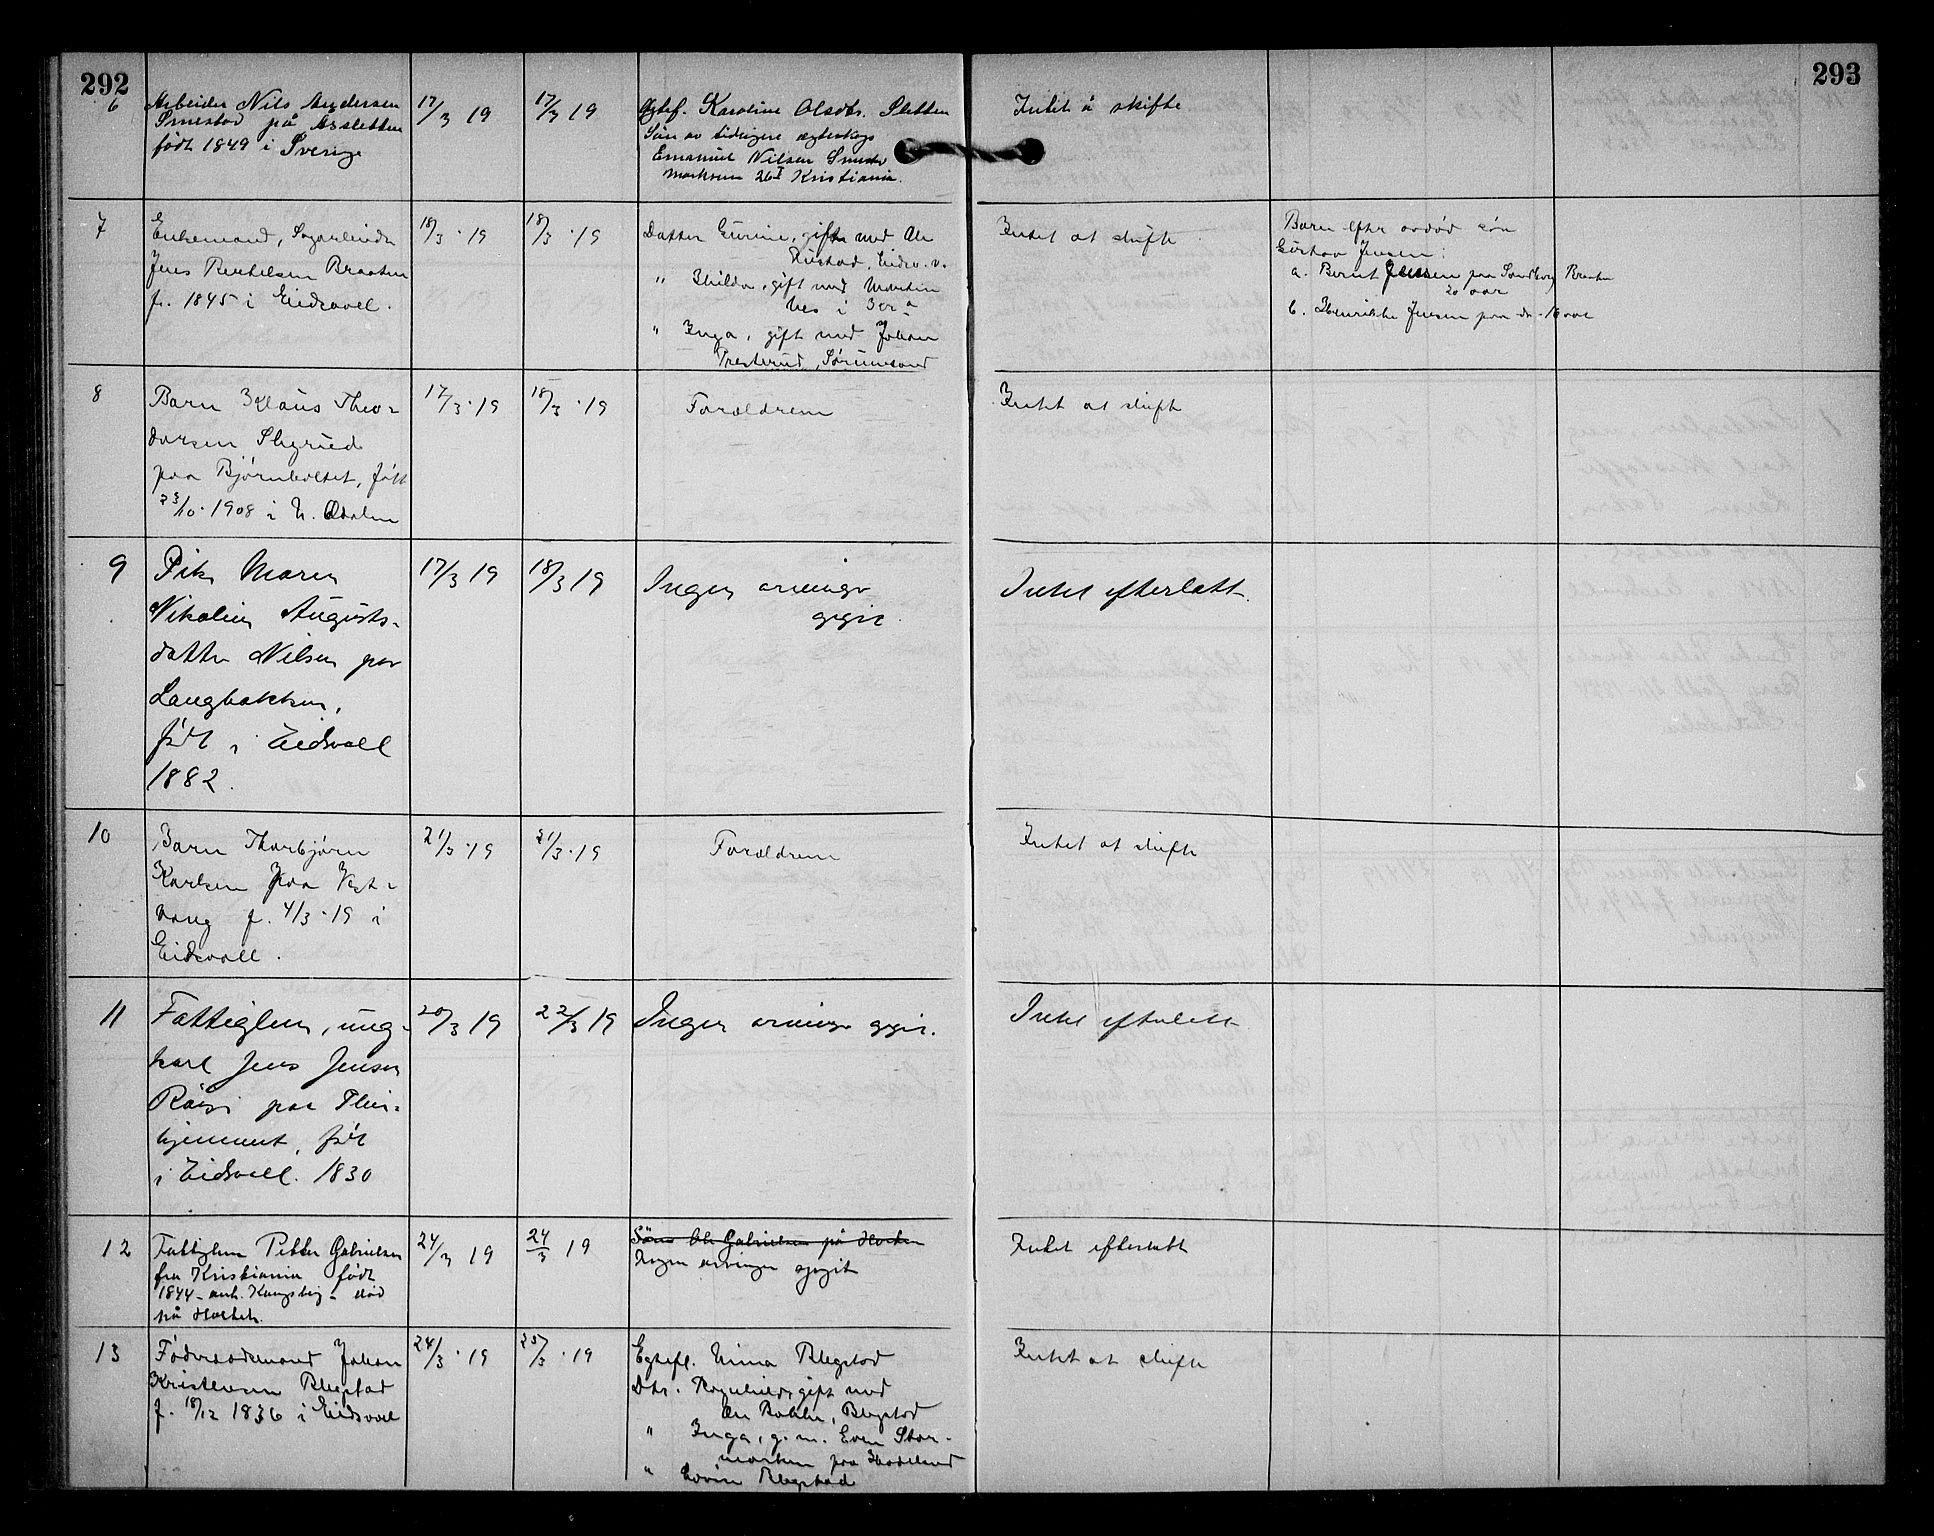 292
293
6
Arbeider Nils Andersen
Smestad på
født 1849 i Sverige
17/3 19
17/3 19
Ægtef. Karoline Olsdtr. Sletten
Søn av tidligere
Emanuel Nilsen
26 I Kristiania.
Intet å skifte
7
Enkemand,
Jens Braaten
f. 1845 i Eidsvoll.
18/3 · 19
18/3 · 19
Datter Gurine, gift med Ole
Rustad, Eidsv. v.
" Hilda, gift med Martin
Nes i
" Inga, gift med Johan
Presterud, Sørumsand
Intet at skifte
Barn efter avdød søn
Gustav Jensen:
a. Bernt Jensen paa Braaten
20 aar
b. Henrikke Jensen paa do - 16 aar
8
Barn Klaus Theo-
dorsen
paa Bjørnholtet, født
23/10 · 1908 i N. Odalen
17/3 · 19
18/3 · 19
Forældrene
Intet at skifte
9
Pike Maren
Nikoline Augusts-
datter Nilsen paa
Langbakken,
født i Eidsvoll
1882.
17/3 19
18/3 19
Ingen arvinge
opgit.
Intet efterlatt.
10
Barn Thorbjørn
Karlsen paa Vest-
vang f. 4/3 · 19 i
Eidsvoll.
21/3 · 19
21/3 · 19
Forældrene
Intet at skifte
11
Fattiglem, ung-
karl Jens Jensen
paa Pleie-
hjemmet, født
i Eidsvoll. 1830
20/3 19
22/3 19
Ingen arvinge opgit.
Intet efterlatt
12
Fattiglem Petter Gabrielsen
fra Kristiania født
1844 - anh. Kongsberg - død
på Holtet.
24/3 19
24/3 19
Søn Ole Gabrielsen på
Ingen arvinger opgit
Intet efterlatt
13
Føderaadsmand Johan
Kristensen Blegstad
f. 18/12 1836 i Eidsvoll
24/3 · 19
25/3 · 19
Egtefl. Nina Blegstad
Dtr. Ragnhild, gift med
Ole Bakke, Blegstad
" Inga, g. m. Even Stor-
marken paa
" Lovise Blegstad
Intet at skifte